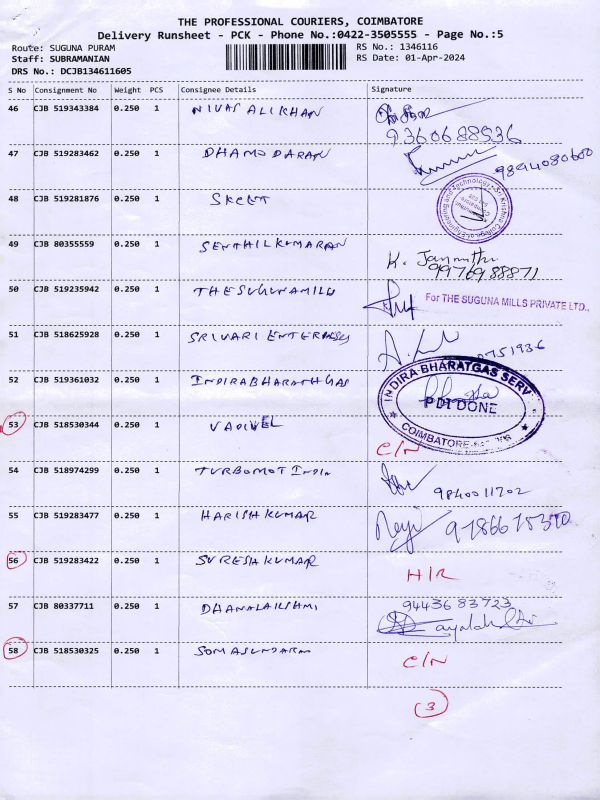 THE PROFESSIONAL COURIERS, COIMBATORE
Delivery Runsheet - PCK - Phone No.:0422-3505555 - Page No.:5
Route: SUGUNA PURAM
RS No.: 1346116
Staff: SUBRAMANIAN
RS Date: 01-Apr-2024
DRS No.: DCJB134611605
S No Consignment No Weight PCS Consignee Details Signature
46 CJB 519343384 0.250 1 NIVAS ALIKHAN
9360688536
47 CJB 519283462 0.250 1 DHAMODARAN 9894080600
48 CJB 519281876 0.250 1 SKCET
Sri Krishna College of Engineering and Technology
49 CJB 80355559 0.250 1 SENTHILKUMARAN K. Jayanthi
9976988871
50 CJB 519235942 0.250 1 THESUGUNAMILLS For THE SUGUNA MILLS PRIVATE LTD.,
51 CJB 518625928 0.250 1 SRIVARI ENTERPRISES 0751936
52 CJB 519361032 0.250 1 INDIRABHARATHGAS
INDIRA BHARATGAS SERV
PDI DONE
COIMBATORE
53 CJB 518530344 0.250 1 VADIVEL C/N
54 CJB 518974299 0.250 1 TURBOMOT INDIA 9840011702
55 CJB 519283477 0.250 1 HARISH KUMAR
56 CJB 519283422 0.250 1 SURESH KUMAR H/R
57 CJB 80337711 0.250 1 DHANALAKSHMI 9443683723
58 CJB 518530325 0.250 1 SOMASUNDARAM C/N
3